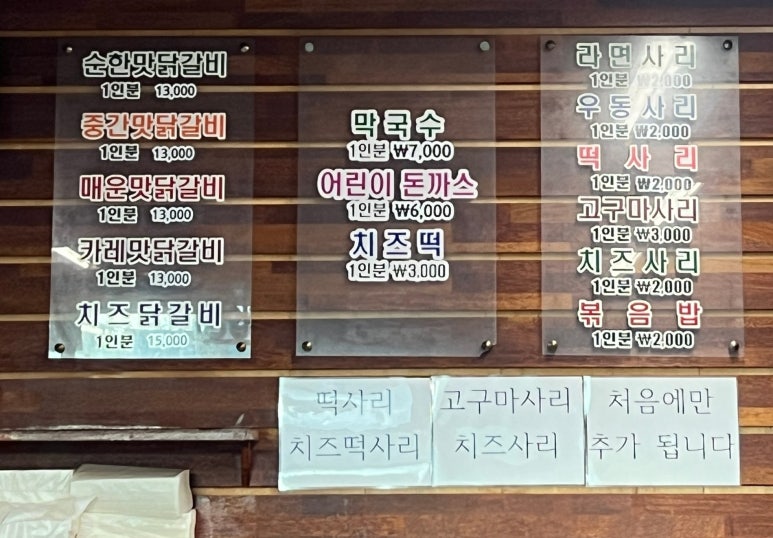 순한맛닭갈비
1인분 13,000
중간맛닭갈비
1인분 13,000
매운맛닭갈비
1인분 13,000
카레맛닭갈비
1인분 13,000
치즈닭갈비
1인분 15,000
막국수
1인분 ₩7,000
어린이 돈까스
1인분 ₩6,000
치즈떡
1인분 ₩3,000
라면사리
1인분 ₩2,000
우동사리
1인분 ₩2,000
떡사리
1인분 ₩2,000
고구마사리
1인분 ₩3,000
치즈사리
1인분 ₩2,000
볶음밥
1인분 ₩2,000
떡사리
치즈떡사리
고구마사리
치즈사리
처음에만
추가 됩니다